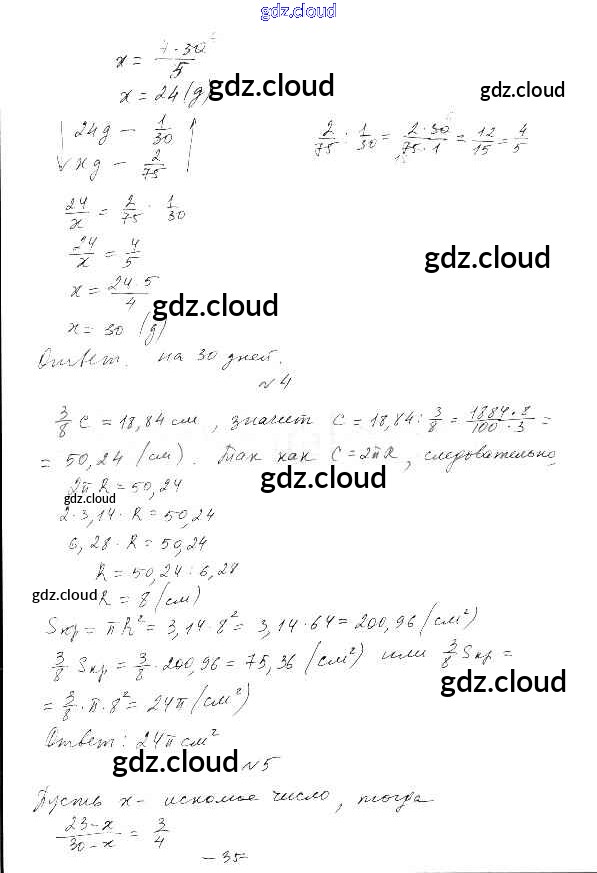 gdz.cloud
x = 4·30/5
x = 24 (g) gdz.cloud gdz.cloud
24g – 1/30
xg – 2/75
2/75 : 1/30 = 2·30/75·1 = 12/15 = 4/5
24/x = 2/75 : 1/30
24/x = 4/5 gdz.cloud
x = 24·5/4 gdz.cloud
x = 30 (g)
Ответ. на 30 дней.
№4
3/8 C = 18,84 см, значит C = 18,84 : 3/8 = 1884·8/100·3 =
= 50,24 (см). Так как C = 2πR, следовательно,
gdz.cloud
2πR = 50,24
gdz.cloud
2·3,14·R = 50,24
6,28·R = 50,24
R = 50,24 : 6,28
gdz.cloud R = 8 (см) gdz.cloud
Sкр = πR² = 3,14·8² = 3,14·64 = 200,96 (см²)
3/8 Sкр = 3/8 · 200,96 = 75,36 (см²) или 3/8 Sкр =
gdz.cloud
= 3/8 · π · 8² = 24π (см²)
Ответ: 24π см²
gdz.cloud №5
Пусть x – искомое число, тогда
23–x/30–x = 3/4
– 35